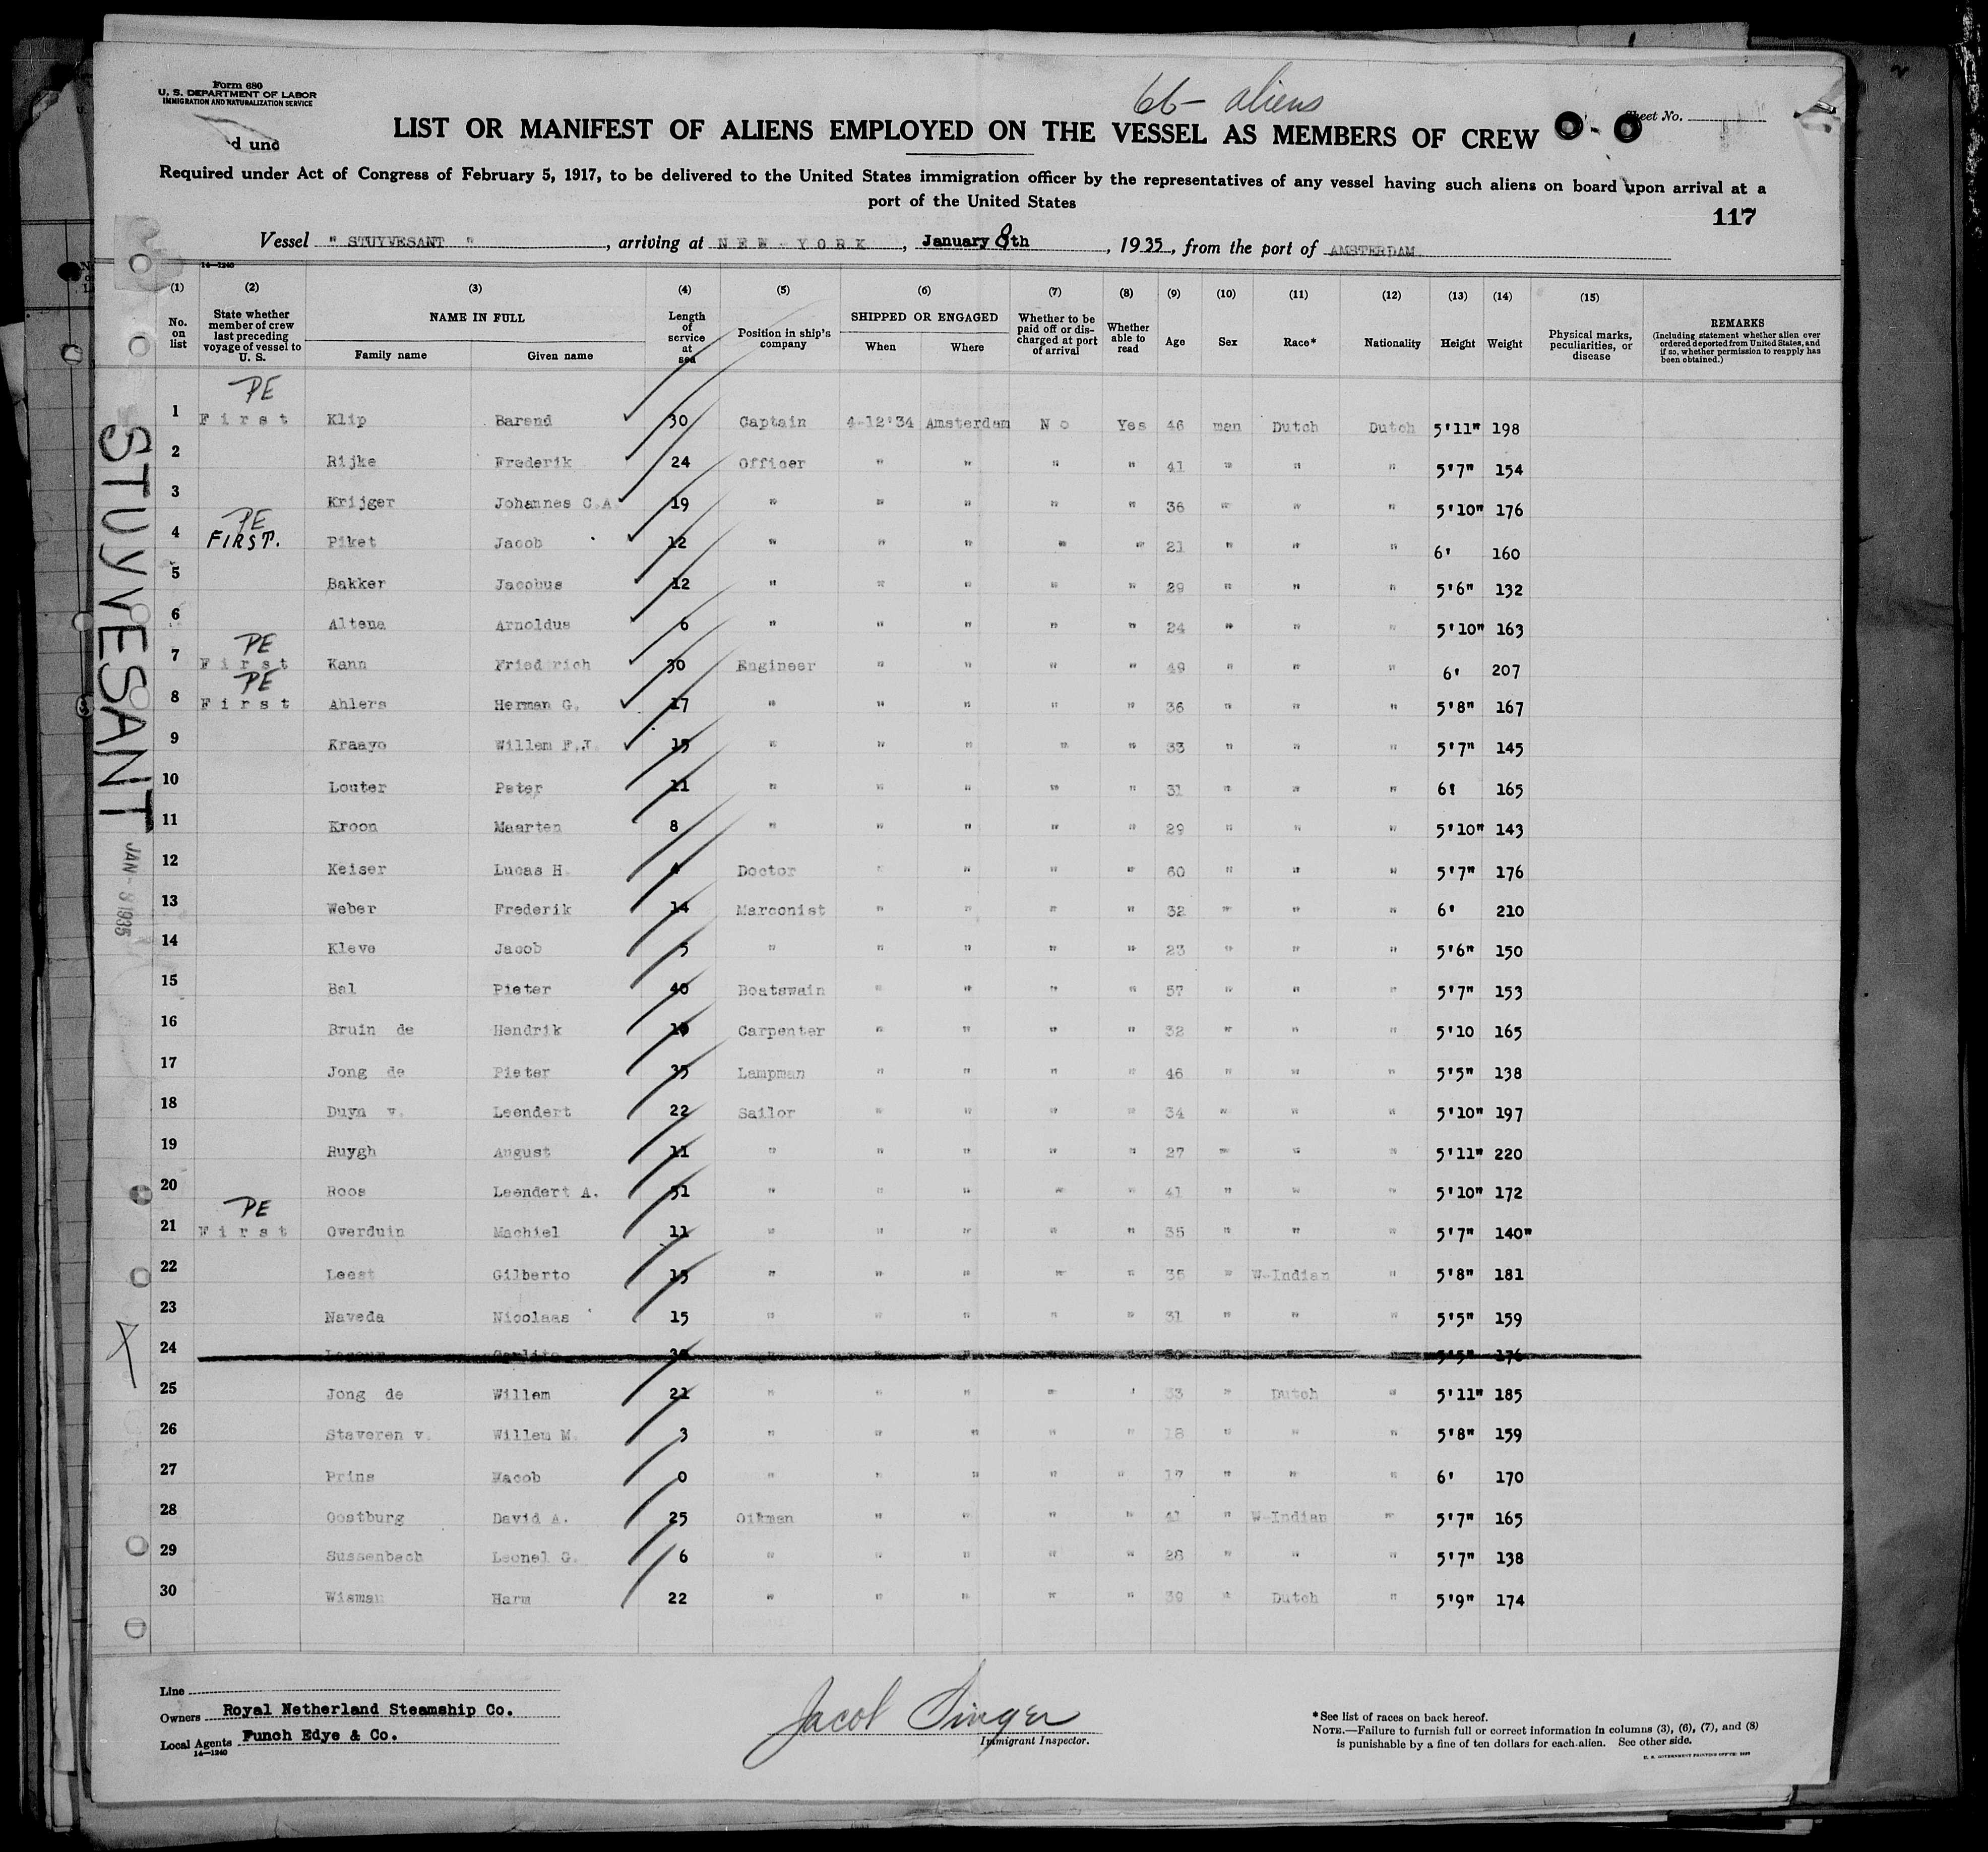 Form 680
U. S. DEPARTMENT OF LABOR
IMMIGRATION AND NATURALIZATION SERVICE
d und
66- aliens
LIST OR MANIFEST OF ALIENS EMPLOYED ON THE VESSEL AS MEMBERS OF CREW
Sheet No.
Required under Act of Congress of February 5, 1917, to be delivered to the United States immigration officer by the representatives of any vessel having such aliens on board upon arrival at a
port of the United States
117
Vessel " STUYVESANT " , arriving at NEW-YORK , January 8th , 1935 , from the port of AMSTERDAM
14-1240
(1) (2) (3) (4) (5) (6) (7) (8) (9) (10) (11) (12) (13) (14) (15)
No. on list
State whether member of crew last preceding voyage of vessel to U. S.
NAME IN FULL
Family name Given name
Length of service at sea
Position in ship's company
SHIPPED OR ENGAGED
When Where
Whether to be paid off or discharged at port of arrival
Whether able to read
Age
Sex
Race*
Nationality
Height
Weight
Physical marks, peculiarities, or disease
REMARKS
(Including statement whether alien ever ordered deported from United States, and if so, whether permission to reapply has been obtained.)
PE
1 First Klip Barend 30 Captain 4-12'34 Amsterdam No Yes 46 man Dutch Dutch 5'11" 198
2 Rijke Frederik 24 Officer " " " " 41 " " " 5'7" 154
3 Krijger Johannes C.A. 19 " " " " " 36 " " " 5'10" 176
PE
4 FIRST. Piket Jacob 12 " " " " " 21 " " " 6' 160
5 Bakker Jacobus 12 " " " " " 29 " " " 5'6" 132
6 Altena Arnoldus 6 " " " " " 24 " " " 5'10" 163
PE
7 First Kann Friedrich 30 Engineer " " " " 49 " " " 6' 207
PE
8 First Ahlers Herman G. 17 " " " " " 36 " " " 5'8" 167
9 Kraayo Willem F.J. 15 " " " " " 33 " " " 5'7" 145
10 Louter Peter 11 " " " " " 31 " " " 6' 165
11 Kroon Maarten 8 " " " " " 29 " " " 5'10" 143
12 Keiser Lucas H. 4 Doctor " " " " 60 " " " 5'7" 176
13 Weber Frederik 14 Marconist " " " " 32 " " " 6' 210
14 Kleve Jacob 5 " " " " " 23 " " " 5'6" 150
15 Bal Pieter 40 Boatswain " " " " 57 " " " 5'7" 153
16 Bruin de Hendrik Carpenter " " " " 32 " " " 5'10 165
17 Jong de Pieter 35 Lampman " " " " 46 " " " 5'5" 138
18 Duyn v. Leendert 22 Sailor " " " " 34 " " " 5'10" 197
19 Ruygh August 11 " " " " " 27 " " " 5'11" 220
20 Roos Leendert A. 31 " " " " " 41 " " " 5'10" 172
PE
21 First Overduin Machiel 11 " " " " " 35 " " " 5'7" 140"
22 Leest Gilberto 15 " " " " " 36 " W-Indian " 5'8" 181
23 Naveda Nicolaas 15 " " " " " 31 " " " 5'5" 159
24 Carlito 5'5" 176
25 Jong de Willem 21 " " " " " 33 " Dutch " 5'11" 185
26 Staveren v. Willem M. 3 " " " " " 18 " " " 5'8" 159
27 Prins Hacob 0 " " " " " 17 " " " 6' 170
28 Oostburg David A. 25 Oilman " " " " 41 " W-Indian " 5'7" 165
29 Sussenbach Leonel G. 6 " " " " " 28 " " " 5'7" 138
30 Wisman Harm 22 " " " " " 39 " Dutch " 5'9" 174
STUYVESANT
JAN - 8 1935
Line
Owners Royal Netherland Steamship Co.
Local Agents Funch Edye & Co.
14-1240
Jacob Singer
Immigrant Inspector.
*See list of races on back hereof.
NOTE.—Failure to furnish full or correct information in columns (3), (6), (7), and (8)
is punishable by a fine of ten dollars for each alien. See other side.